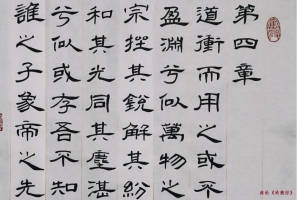 第四章
道衝而用之或不
盈淵兮似萬物之
宗挫其銳解其紛
和其光同其塵湛
兮似或存吾不知
誰之子象帝之先